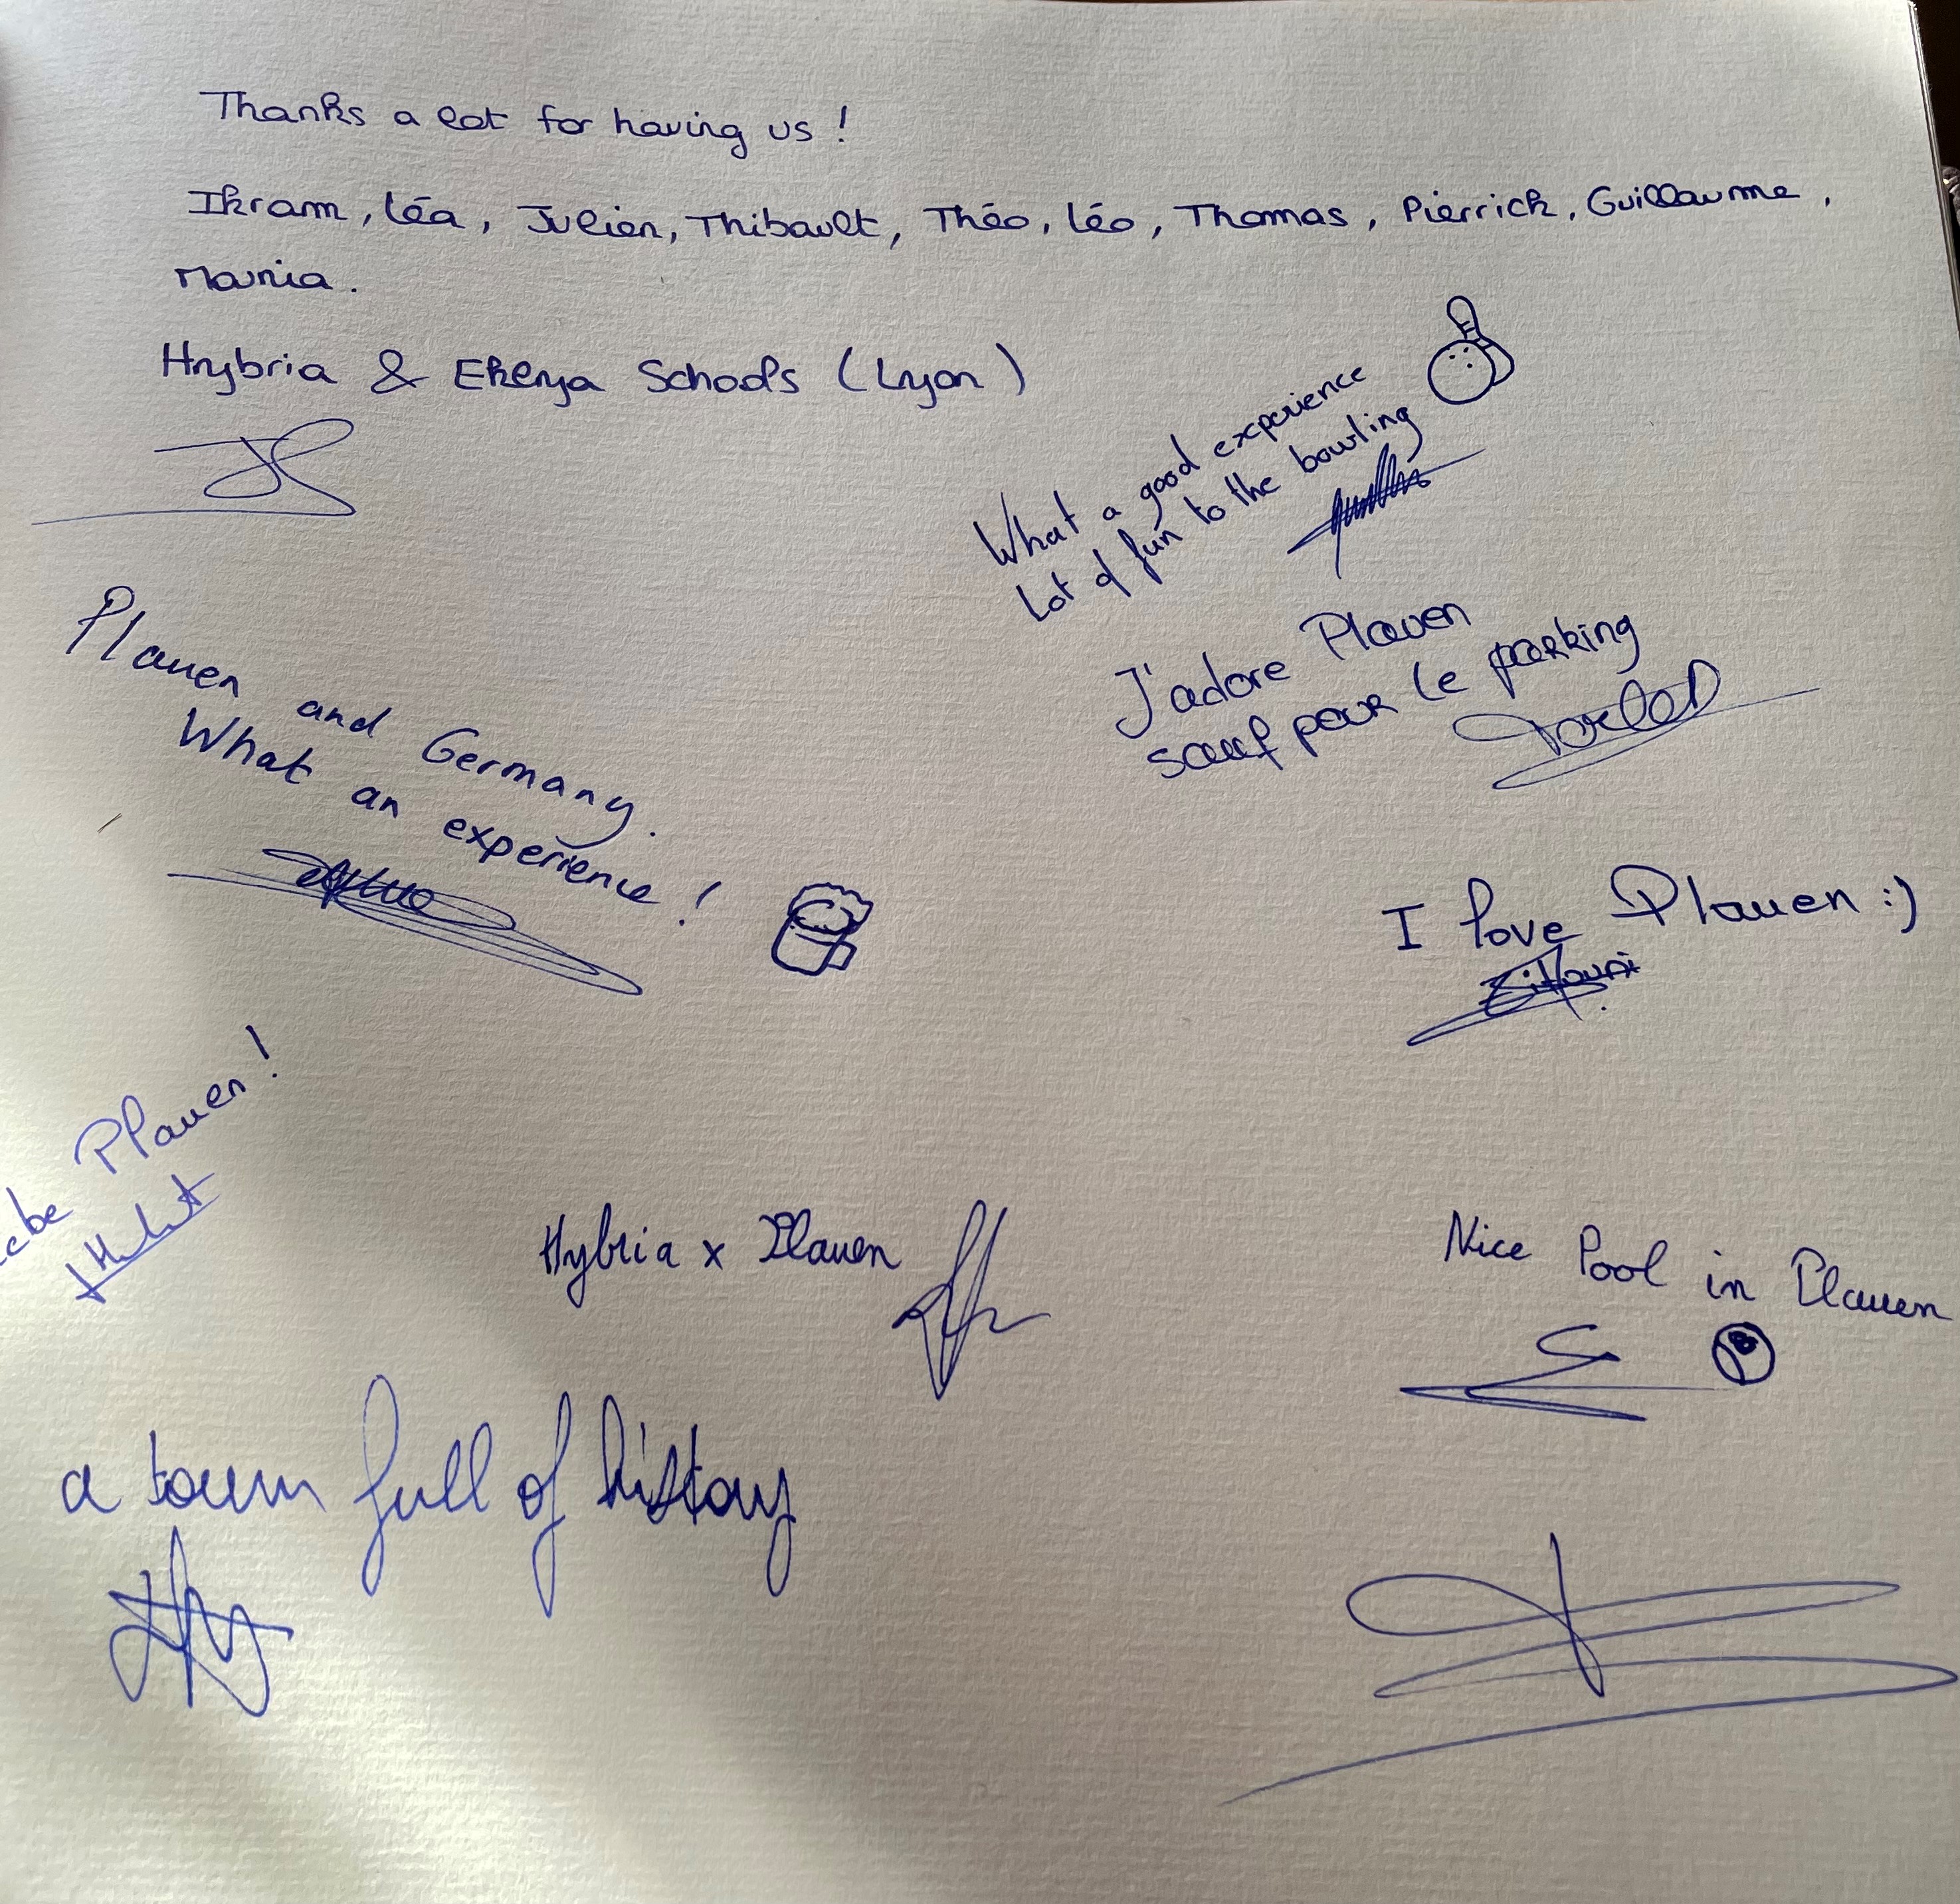 Thanks a lot for having us !
Ikram, Léa, Julien, Thibault, Théo, Léo, Thomas, Pierrick, Guillaume,
Mania.
Hybria & Ekelya Schools (Lyon)
What a good experience
Lot of fun to the bowling
J'adore Plauen
sauf pour le parking
Plauen and Germany.
What an experience !
I love Plauen :)
Plauen !
Hybria x Plauen
Nice Pool in Plauen
8
a town full of history